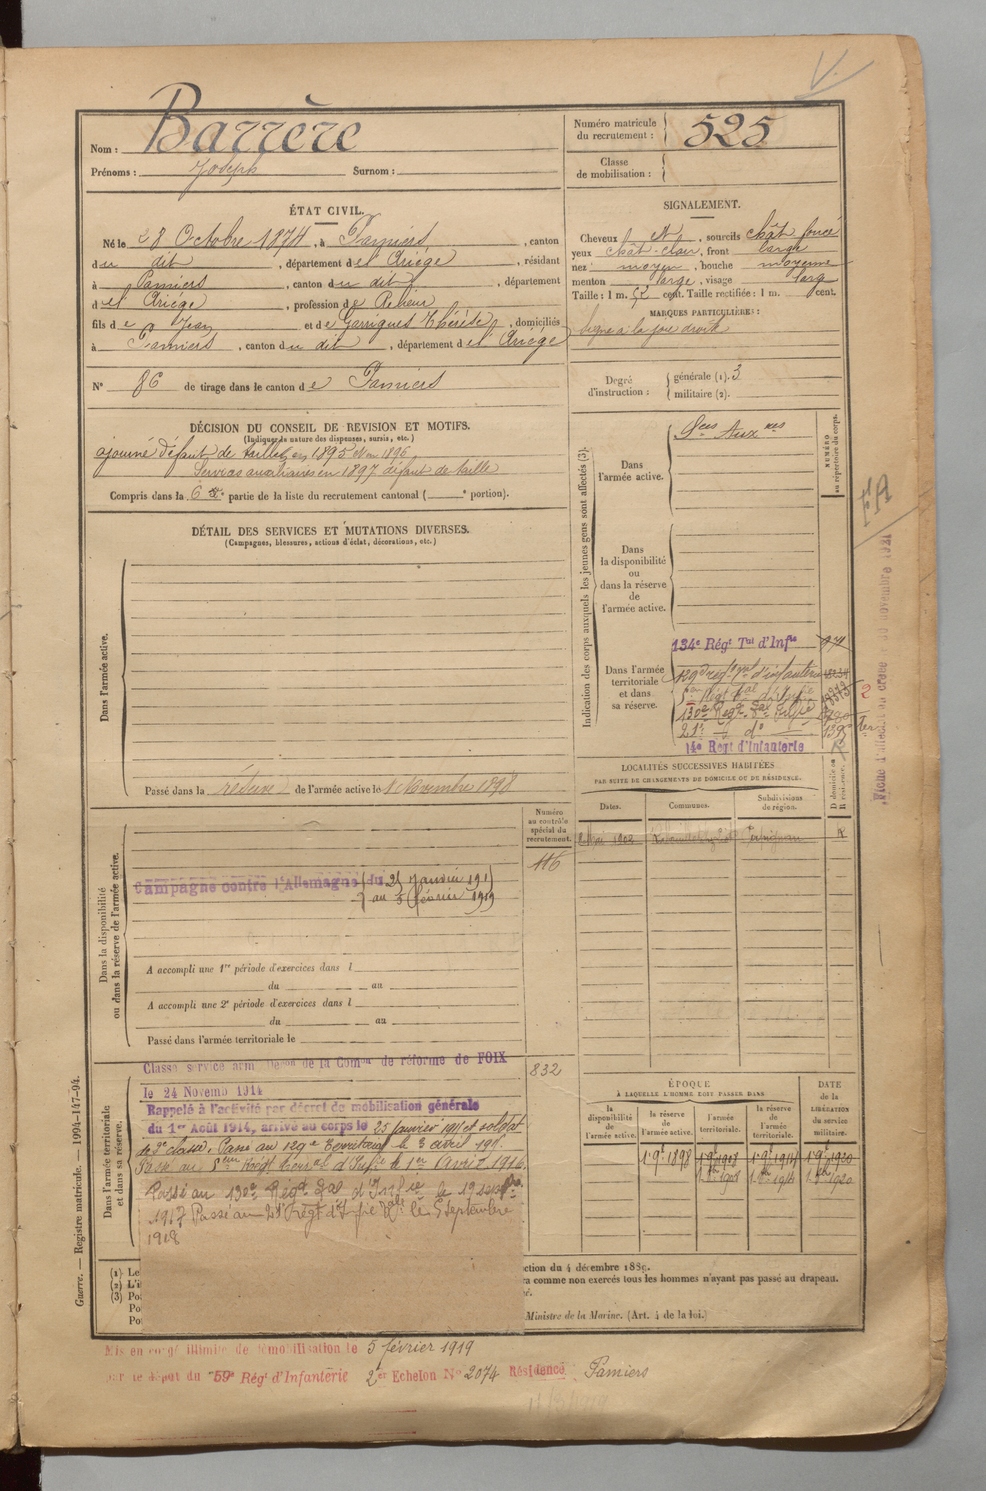 V.
Nom : Barrère
Prénoms : Joseph Surnom :
Numéro matricule du recrutement : 525
Classe de mobilisation :
ÉTAT CIVIL.
Né le 28 Octobre 1874, à Pamiers, canton
du dit, département de l'Ariège, résidant
à Pamiers, canton du dit, département
de l'Ariège, profession de
fils de Jean et de Garrigues Thérèse, domiciliés
à Pamiers, canton du dit, département de l'Ariège
N° 86 de tirage dans le canton de Pamiers
SIGNALEMENT.
Cheveux , sourcils chât foncé
yeux chât-clair, front large
nez moyen, bouche moyenne
menton large, visage larg
Taille : 1 m. 52 cent. Taille rectifiée : 1 m. cent.
MARQUES PARTICULIÈRES :
Signe à la joue droite
Degré d'instruction : générale (1). 3
militaire (2).
DÉCISION DU CONSEIL DE REVISION ET MOTIFS.
(Indiquer la nature des dispenses, sursis, etc.)
ajourné défaut de taille en 1895 et en 1896
Services auxiliaires en 1897 défaut de taille
Compris dans la 6e partie de la liste du recrutement cantonal ( e portion).
DÉTAIL DES SERVICES ET MUTATIONS DIVERSES.
(Campagnes, blessures, actions d'éclat, décorations, etc.)
Dans l'armée active.
Passé dans la réserve de l'armée active le 1 Novembre 1898
Indication des corps auxquels les jeunes gens sont affectés (3).
NUMÉRO au répertoire du corps.
Dans l'armée active.
Sces Auxres
Dans la disponibilité ou dans la réserve de l'armée active.
Dans l'armée territoriale et dans sa réserve.
134e Régt Tal d'Infie
129e régt Tal d'infanterie
5me Régt Tal d'Infie
130e Régt Tal Infie
21e d°
14e Regt d'Infanterie
FA
2
LOCALITÉS SUCCESSIVES HABITÉES
PAR SUITE DE CHANGEMENTS DE DOMICILE OU DE RÉSIDENCE.
Dates.
Communes.
Subdivisions de région.
D domicile ou R résidence.
Mai 1902 Perpignan R
Numéro au contrôle spécial du recrutement.
116
Dans la disponibilité ou dans la réserve de l'armée active.
Campagne contre l'Allemagne du 25 Janvier 191
au 5 février 1919
A accompli une 1re période d'exercices dans l
du au
A accompli une 2e période d'exercices dans l
du au
Passé dans l'armée territoriale le
832
Dans l'armée territoriale et dans sa réserve.
Classé service armé Décon de la Comon de réforme de FOIX
le 24 Novemb 1914
Rappelé à l'activité par décret de mobilisation générale
du 1er Août 1914, arrivé au corps le 25 janvier 1915 et soldat
de 2e classe. Passé au 129e Territorial le 3 avril 191
Passé au 5eme Régt territ d'Infie le 1er Avril 1916
Passé au 130e Régt Tal d'Infie le 19
1917 Passé au 21e Régt d'Infie Tale le 5 Septembre
1918
ÉPOQUE
À LAQUELLE L'HOMME DOIT PASSER DANS
la disponibilité de l'armée active.
la réserve de l'armée active.
l'armée territoriale.
la réserve de l'armée territoriale.
DATE de la LIBÉRATION du service militaire.
1 9e 1898 1 9e 1908 1 9e 1914 1 9e 1920
(1) Le
(2) L'i
(3) Po
Po
Po
ction du 4 décembre 1889.
ra comme non exercés tous les hommes n'ayant pas passé au drapeau.
Ministre de la Marine. (Art. 4 de la loi.)
Guerre. — Registre matricule. — 1994-147-94.
Mis en congé illimité de démobilisation le 5 février 1919
par le dépôt du 59e Régt d'Infanterie 2er Echelon N° 2074 Résidence Pamiers